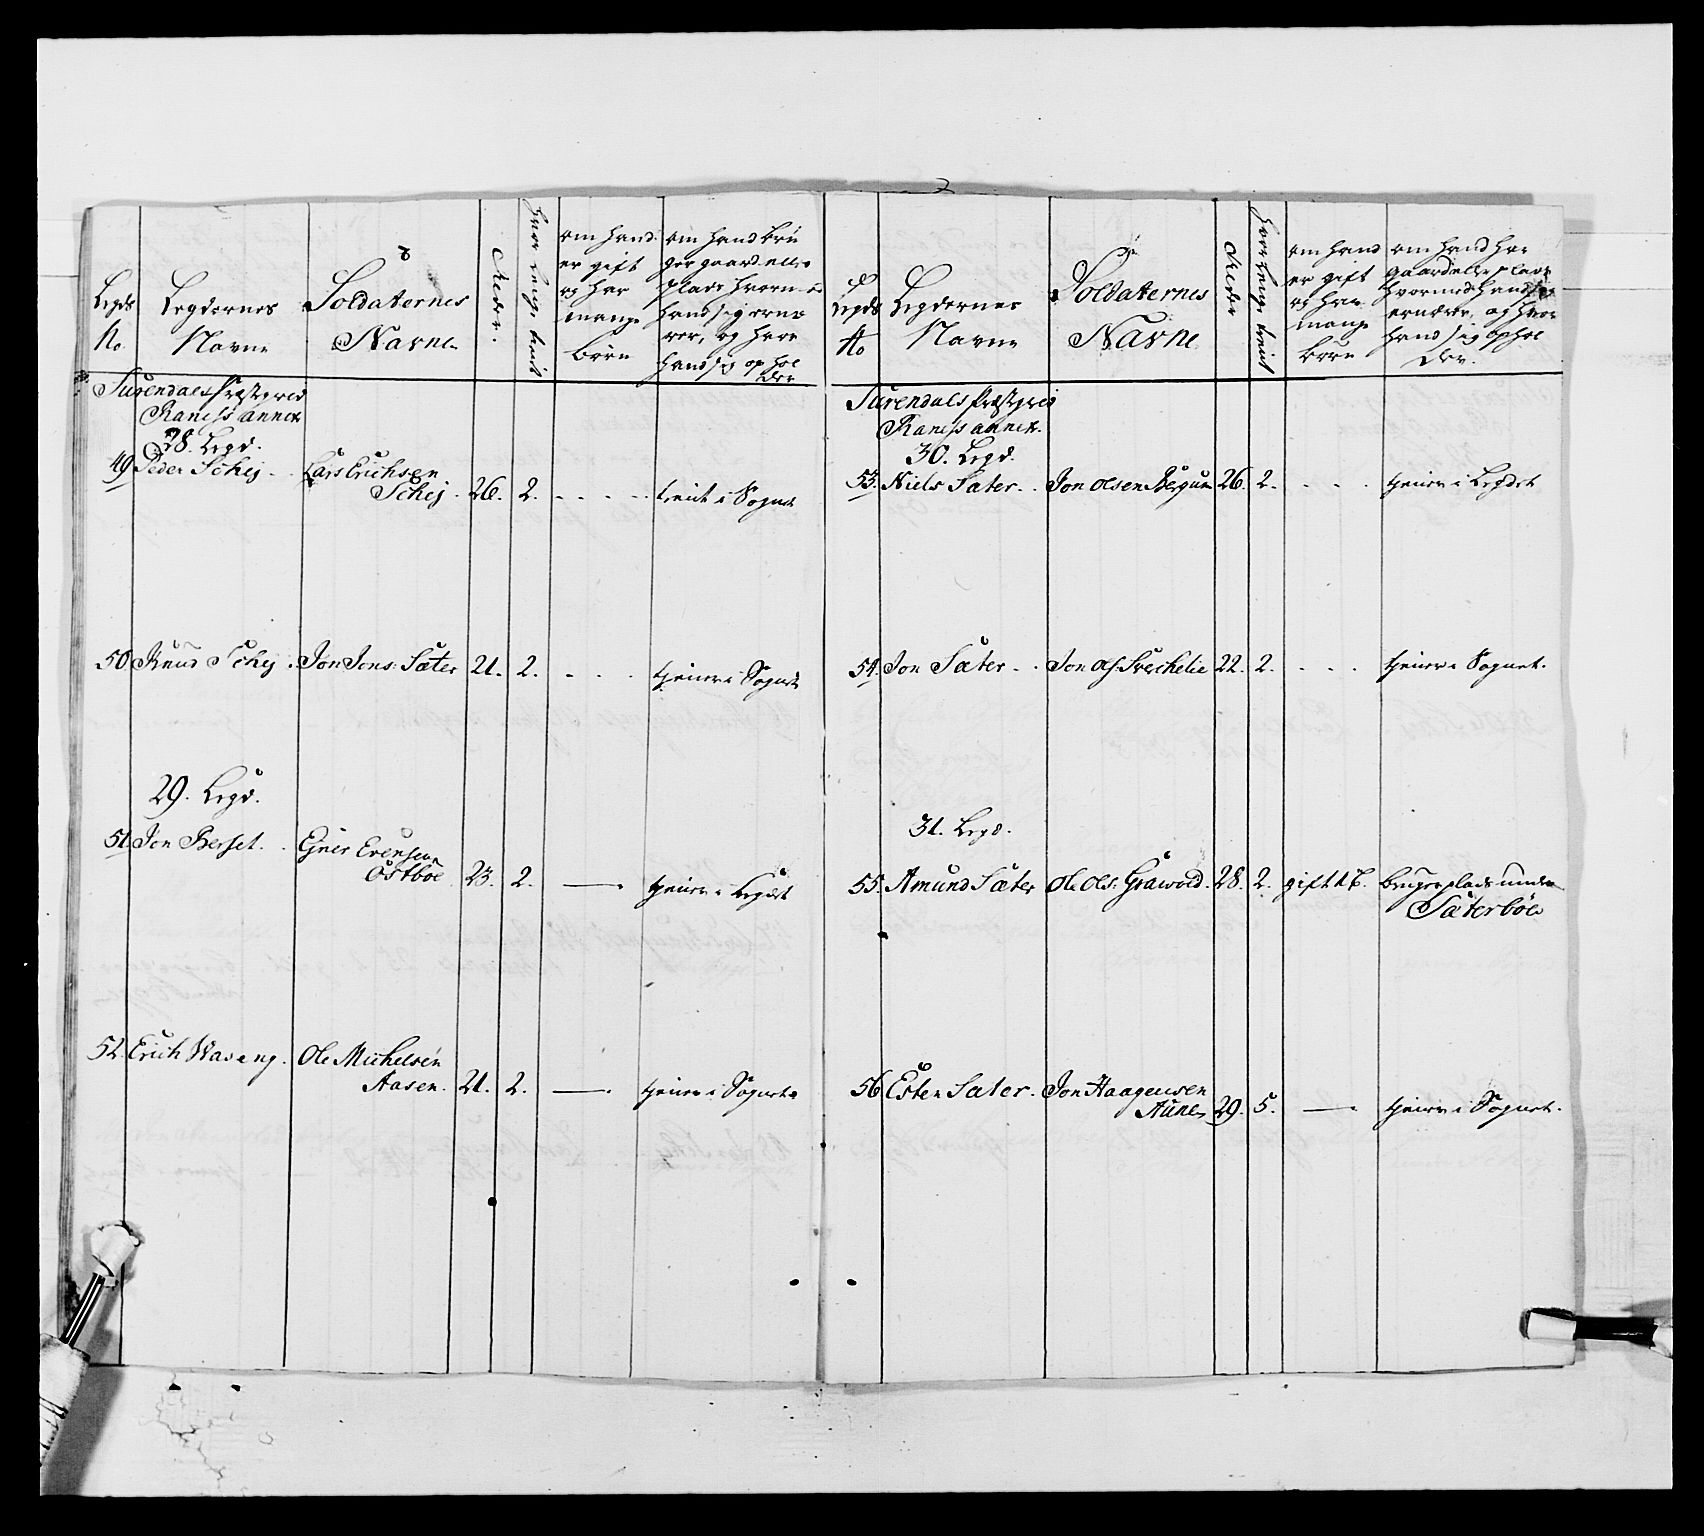 Legds
No
Legdernes
Navne
Soldaternes
Navne
Alder.
hvor lenge tient
om hand
er gift
og har
mange
børn
om hand brü
ger gaard eller
plads hvorm
hand sig ernæ
rer, og hvor
hand sig ophol
der
Surendals Præstegield
Ranes annex
28. Legd.
49 Peder Schej - Lars Erichsen
Schej . 26. 2. - - - - tient i Sognet
50 Knud Schej . Jon Jons: Sæter 21. 2. - - - tjener i Sognet
29. Legd.
51. Jon Berset. . Ejner Evensen
Ostböe 23. 2. — tjener i Legdet
52. Erich Waseng. Ole Michelsen
Aasen. 21. 2. — tjener i Sognet
Legds
No
Legdernes
Navne
Soldaternes
Navne
Alder
hvor lenge tient
om hand
er gift
og har
mange
børn
om hand har
gaard eller plads
hvormed hand sig
ernærer, og hvor
hand sig ophol
der.
Surendals Præstegield
Ranes annex.
30. Legd.
53. Niels Sæter. . Jon Olsen Bergum 26. 2. - - - tjener i Legdet
54. Jon Sæter - . Jon Ols. Svechelie 22. 2. - - - tjener i Sognet.
31. Legd.
55. Amund Sæter Ole Ols: Grawold. 28. 2. gift 1 B. bruger plads under
Sæterböe
56 Esten Sæter. Jon Haagensen
Aune 29. 5. — tjener i Sognet.